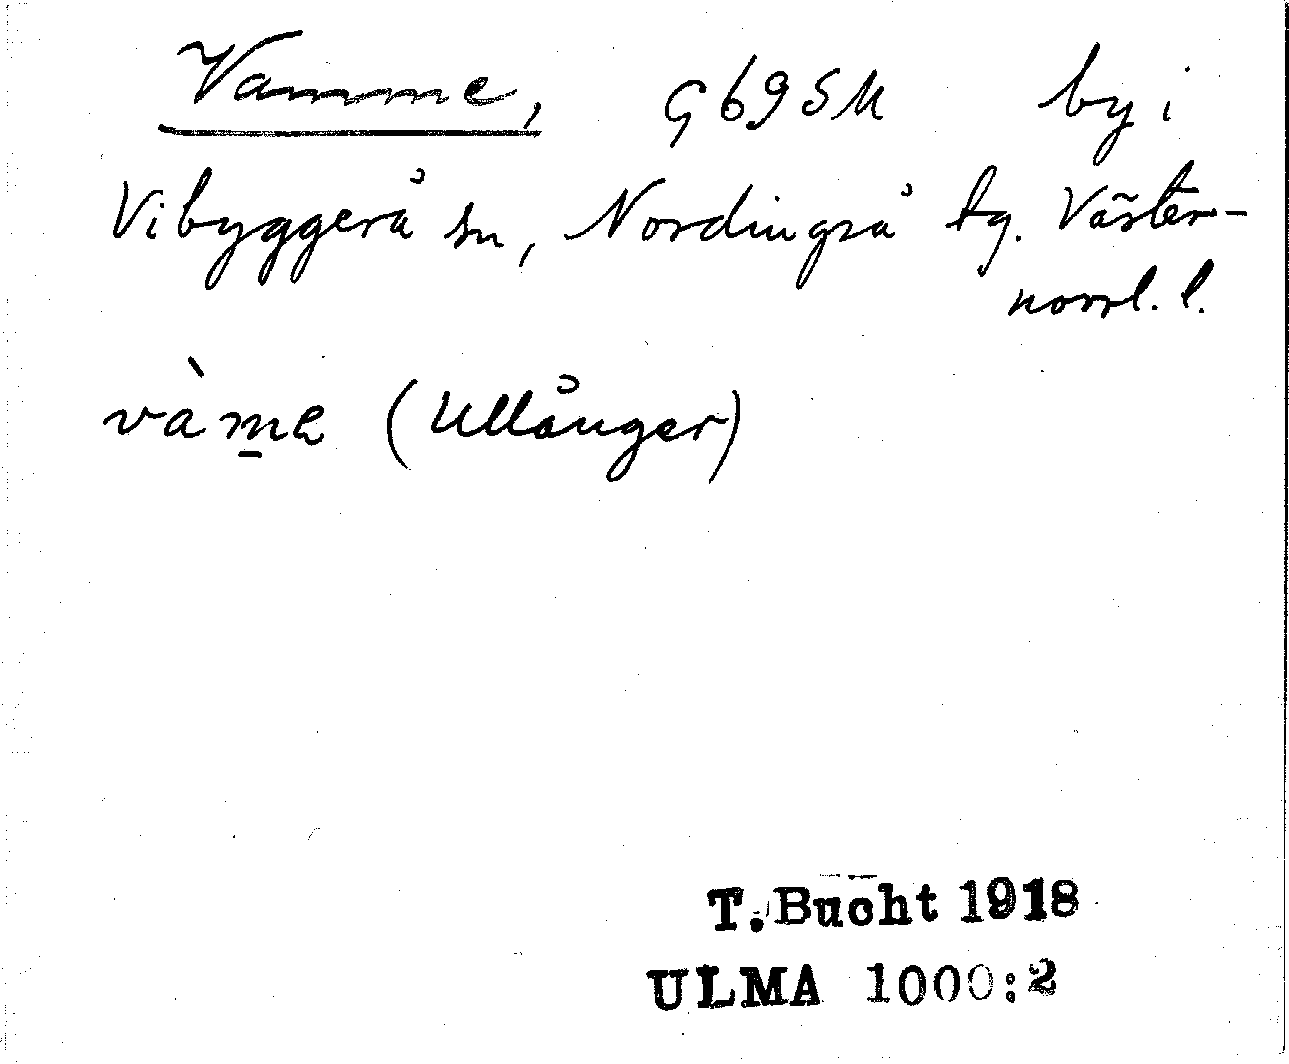 Vamme, G695M by i
Vibyggerå sn, Nordingrå tg. Väster-
norrl. l.
vàme (Ullånger)
T. Bucht 1918
ULMA 1000:2